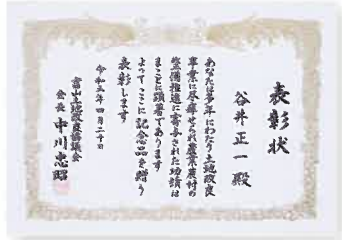 表彰状
谷井正一殿
あなたは多年にわたり土地改良
事業に尽瘁せられ農業農村の
整備推進に寄与された功績は
まことに顕著であります
よってここに記念品を贈り
表彰します
令和五年四月二十日
富山土地改良協議会
会長 中川忠昭